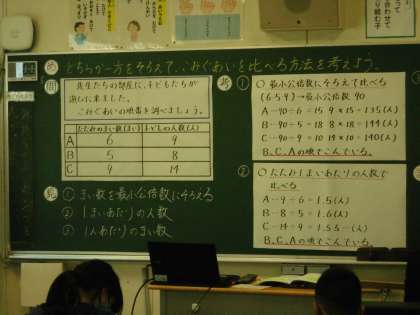 め どちらか一方をそろえて、こみぐあいを比べる方法を考えよう。
問
先生たちの部屋に、子どもたちが
遊びに来ました。
こみぐあいの順番を調べましょう。
たたみのまい数(まい) 子どもの人数(人)
A 6 9
B 5 8
C 9 14
見
① まい数を最小公倍数にそろえる
② 1まいあたりの人数
③ 1人あたりのまい数
考
① ○ 最小公倍数にそろえて比べる
(6 5 9) → 最小公倍数 90
A…90÷6=15 9×15=135(人)
B…90÷5=18 8×18=144(人)
C…90÷9=10 14×10=140(人)
B、C、Aの順でこんでいる。
② ○ たたみ1まいあたりの人数で
比べる
A…9÷6=1.5(人)
B…8÷5=1.6(人)
C…14÷9=1.55…(人)
B、C、Aの順でこんでいる。